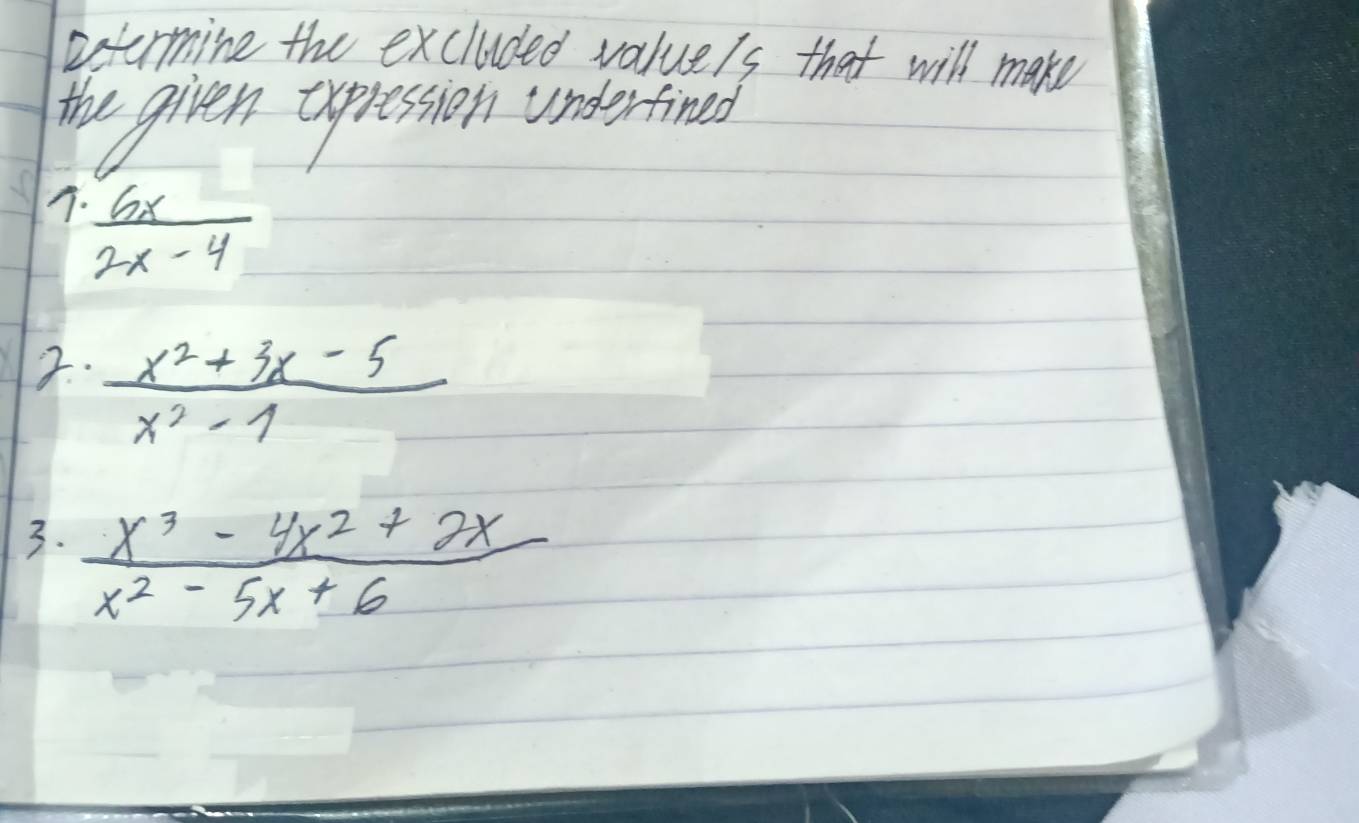 Determine the excluded value/s that will make
the given expression underfined
1. 6x
2x - 4
2. x² + 3x - 5
x² - 1
3. x³ - 4x² + 2x
x² - 5x + 6